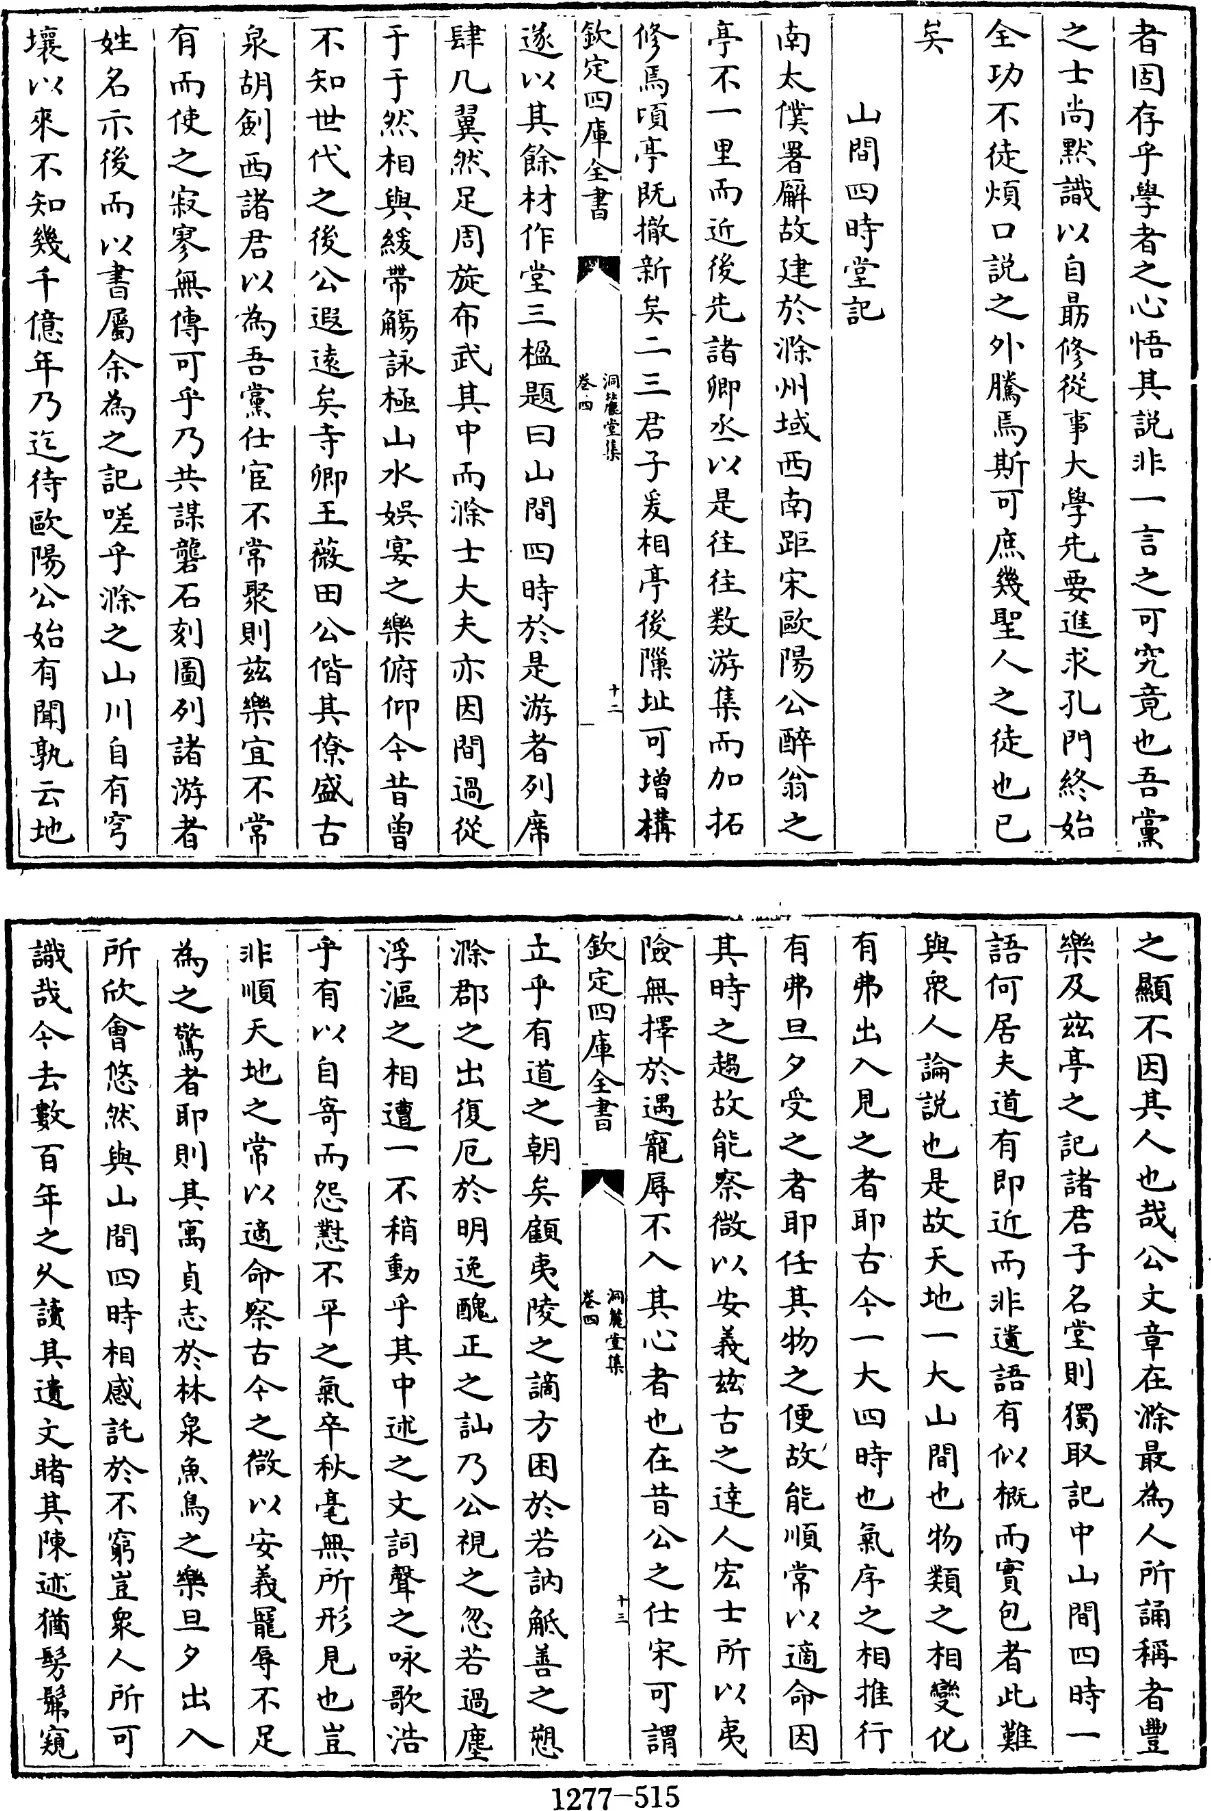 者固存乎學者之心悟其説非一言之可究竟也吾黨
之士尚默識以自勗修從事大學先要進求孔門終始
全功不徒煩口説之外騰焉斯可庶幾聖人之徒也已
矣
山間四時堂記
南太僕署廨故建於滁州域西南距宋歐陽公醉翁之
亭不一里而近後先諸卿丞以是往往数游集而加拓
修焉頃亭既撤新矣二三君子爰相亭後隟址可增構
欽定四庫全書
洞麓堂集
卷四
十二
遂以其餘材作堂三楹題曰山間四時於是游者列席
肆几翼然足周旋布武其中而滁士大夫亦因間過從
于于然相與緩帶觴詠極山水娱宴之樂俯仰今昔曾
不知世代之後公遐遠矣寺卿王薇田公偕其僚盛古
泉胡劍西諸君以為吾黨仕宦不常聚則兹樂宜不常
有而使之寂寥無傳可乎乃共謀礱石刻圖列諸游者
姓名示後而以書屬余為之記嗟乎滁之山川自有穹
壤以來不知幾千億年乃迄待歐陽公始有聞孰云地
之顯不因其人也哉公文章在滁最為人所誦稱者豐
樂及兹亭之記諸君子名堂則獨取記中山間四時一
語何居夫道有即近而非遺語有似概而實包者此難
與衆人論説也是故天地一大山間也物類之相變化
有弗出入見之者耶古今一大四時也氣序之相推行
有弗旦夕受之者耶任其物之便故能順常以適命因
其時之趨故能察微以安義兹古之達人宏士所以夷
險無擇於遇寵辱不入其心者也在昔公之仕宋可謂
欽定四庫全書
洞麓堂集
卷四
十三
立乎有道之朝矣顧夷陵之謫方困於若訥觝善之愬
滁郡之出復厄於明逸醜正之訕乃公視之忽若過塵
浮漚之相遭一不稍動乎其中述之文詞聲之咏歌浩
乎有以自寄而怨懟不平之氣卒秋毫無所形見也豈
非順天地之常以適命察古今之微以安義寵辱不足
為之驚者耶則其寓貞志於林泉魚鳥之樂旦夕出入
所欣會悠然與山間四時相感託於不窮豈衆人所可
識哉今去數百年之久讀其遺文睹其陳迹猶髣髴窺
1277-515